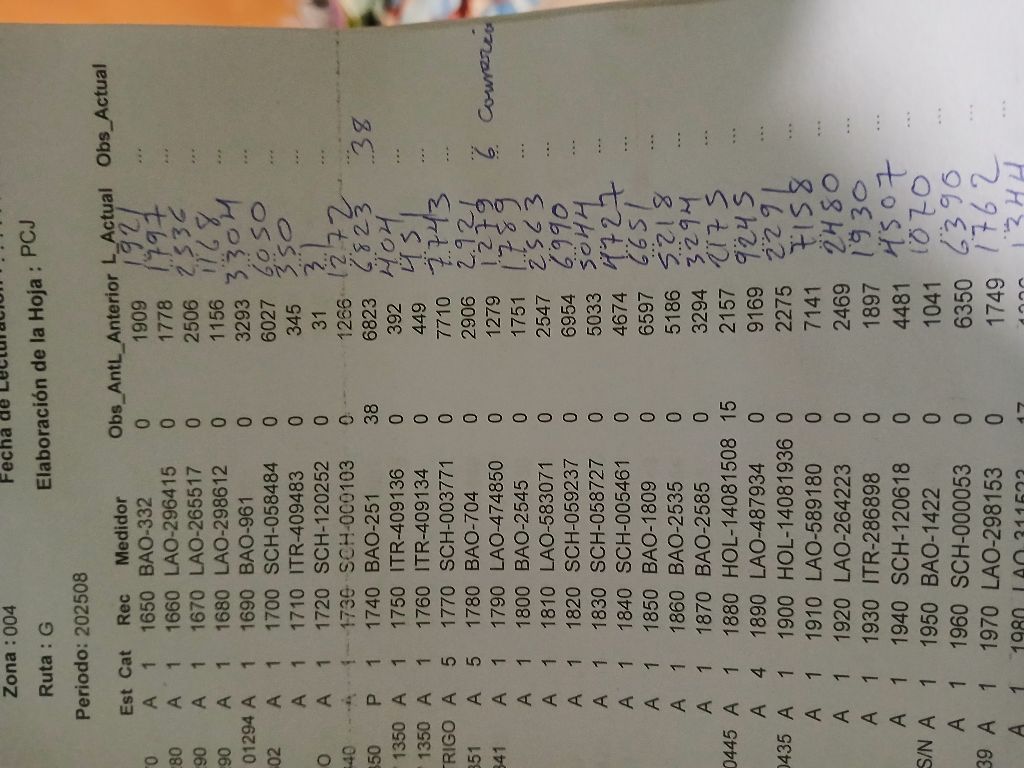 Zona : 004 Fecha de Lecturación
Ruta : G Elaboración de la Hoja : PCJ
Periodo: 202508
Est Cat Rec Medidor Obs_Ant L_Anterior L_Actual Obs_Actual
0 A 1 1650 BAO-332 0 1909 1921 ...
80 A 1 1660 LAO-296415 0 1778 1797 ...
90 A 1 1670 LAO-265517 0 2506 2536 ...
90 A 1 1680 LAO-298612 0 1156 1168 ...
01294 A 1 1690 BAO-961 0 3293 3304 ...
02 A 1 1700 SCH-058484 0 6027 6050 ...
A 1 1710 ITR-409483 0 345 350 ...
O A 1 1720 SCH-120252 0 31 31 ...
440 A 1 1730 SCH-000103 0 1266 1272 ...
850 P 1 1740 BAO-251 38 6823 6823 ... 38
1350 A 1 1750 ITR-409136 0 392 404 ...
1350 A 1 1760 ITR-409134 0 449 451 ...
TRIGO A 5 1770 SCH-003771 0 7710 7743 ...
351 A 5 1780 BAO-704 0 2906 2921 ...
341 A 1 1790 LAO-474850 0 1279 1279 ... 6 Comercio
A 1 1800 BAO-2545 0 1751 1789 ...
A 1 1810 LAO-583071 0 2547 2563 ...
A 1 1820 SCH-059237 0 6954 6990 ...
A 1 1830 SCH-058727 0 5033 5044 ...
A 1 1840 SCH-005461 0 4674 4727 ...
A 1 1850 BAO-1809 0 6597 6651 ...
A 1 1860 BAO-2535 0 5186 5218 ...
A 1 1870 BAO-2585 0 3294 3294 ...
0445 A 1 1880 HOL-14081508 15 2157 2175 ...
A 4 1890 LAO-487934 0 9169 9245 ...
0435 A 1 1900 HOL-14081936 0 2275 2291 ...
A 1 1910 LAO-589180 0 7141 7158 ...
A 1 1920 LAO-264223 0 2469 2480 ...
A 1 1930 ITR-286898 0 1897 1930 ...
A 1 1940 SCH-120618 0 4481 4507 ...
S/N A 1 1950 BAO-1422 0 1041 1070 ...
A 1 1960 SCH-000053 0 6350 6390 ...
39 A 1 1970 LAO-298153 0 1749 1762 ...
A 1 1980 17 1344 ...